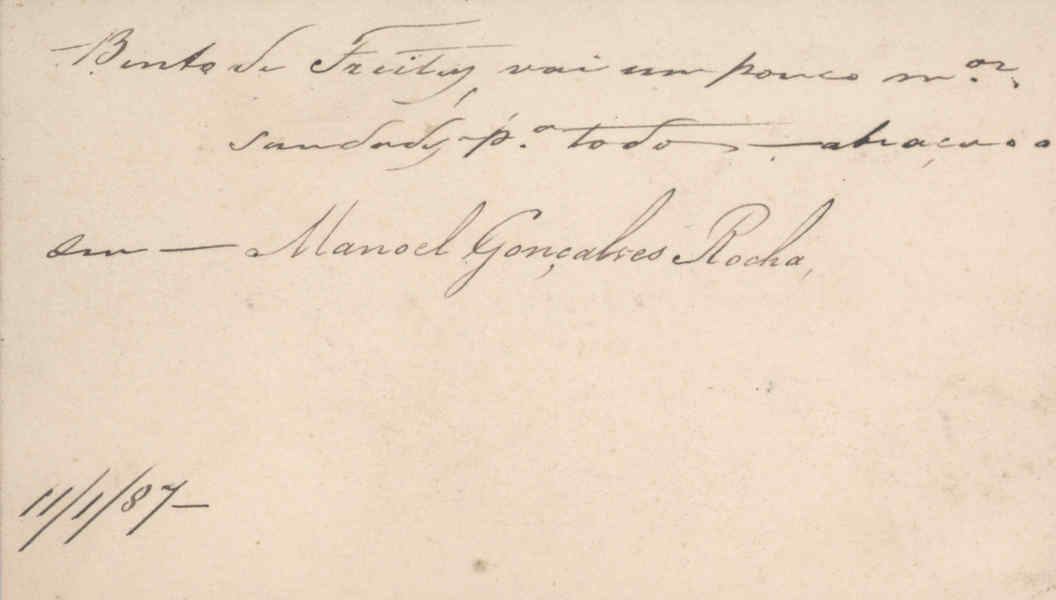 Bento de Freitas vai um pouco m.or
saudades p.a todos – abraça-o o
seu – Manoel Gonçalves Rocha,
11/1/87 –